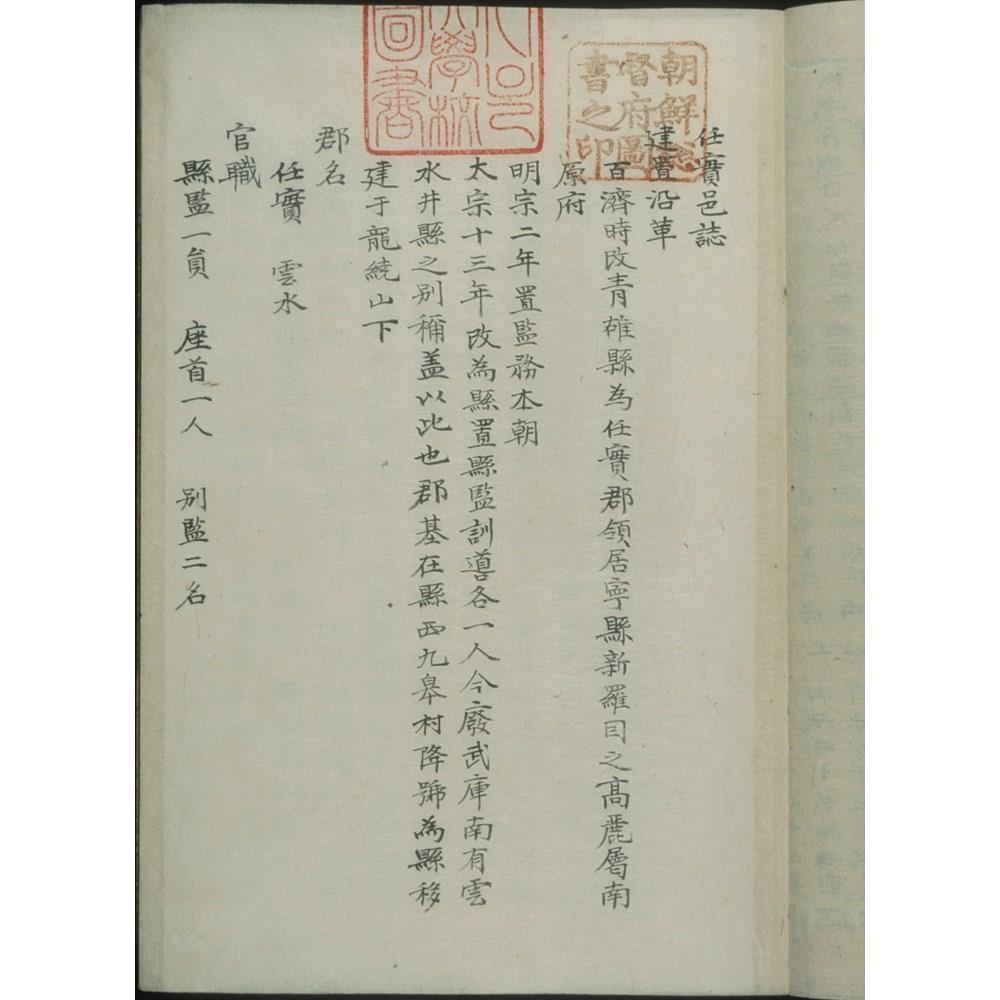 任實邑誌
建置沿革
百濟時改青雄縣為任實郡領居寧縣新羅因之高麗屬南
原府
明宗二年置監務本朝
太宗十三年改為縣置縣監訓導各一人今廢武庫南有雲
水井縣之别稱盖以此也郡基在縣西九皋村降號為縣移
建于龍繞山下
郡名
任實 雲水
官職
縣監一員 座首一人 别監二名
朝鮮總
督府圖
書之印
大學校
圖書